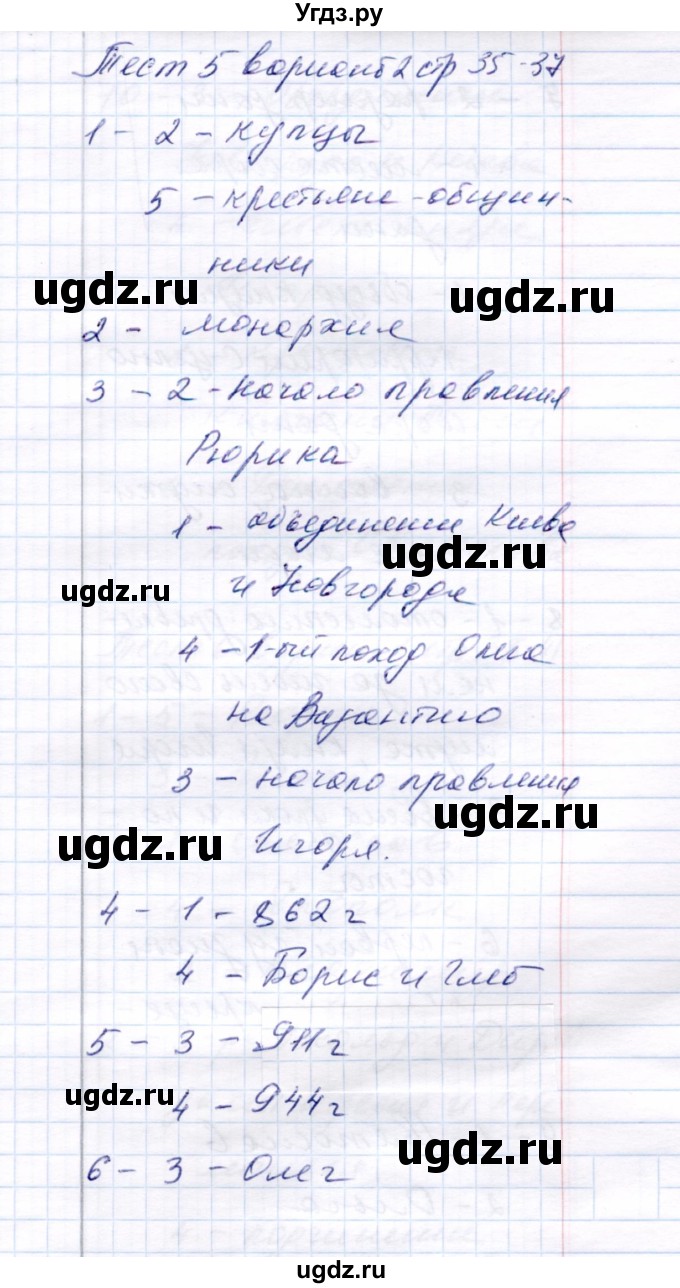 Угдз.ру
Тест 5 вариант 2 стр 35-37
1 - 2 - купцы
5 - крестьяне-общин-
ники
ugdz.ru ugdz.ru
2 - монархия
3 - 2 - начало правления
Рюрика
1 - объединение Киева
ugdz.ru
и Новгорода
ugdz.ru
4 - 1-ый поход Олега
на Византию
3 - начало правления
ugdz.ru
Игоря.
ugdz.ru
4 - 1 - 862 г
4 - Борис и Глеб
5 - 3 - 911 г
ugdz.ru
4 - 944 г
ugdz.ru
6 - 3 - Олег
ugdz.ru
ugdz.ru